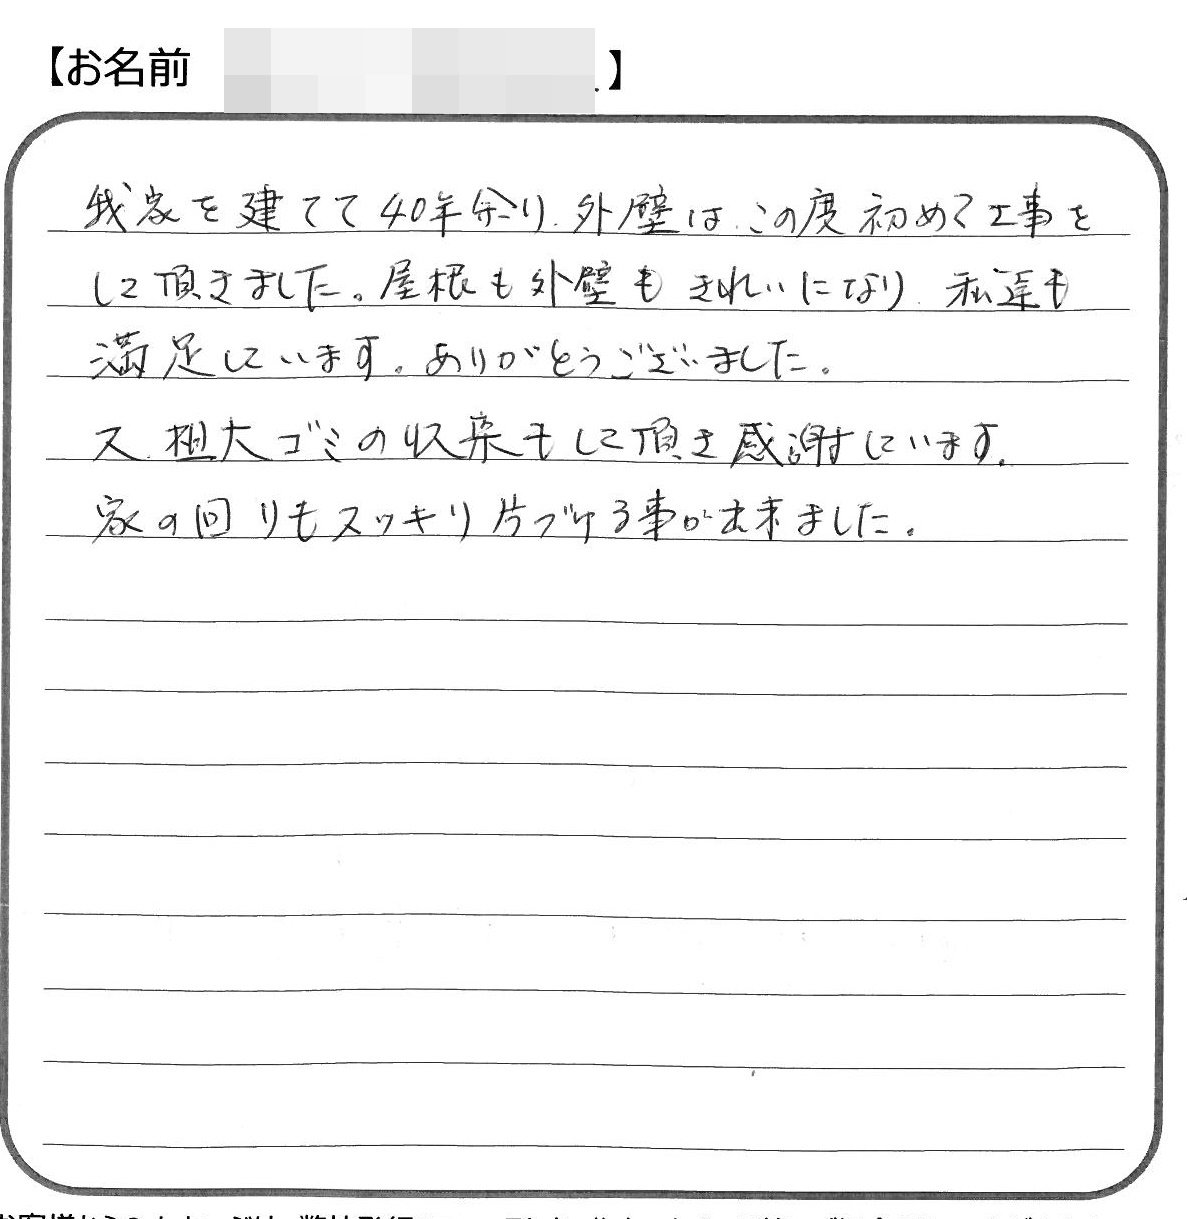 【お名前 】
我家を建てて40年余り、外壁は、この度初めて工事を
して頂きました。屋根も外壁もきれいになり、私達も
満足しています。ありがとうございました。
又、粗大ゴミの収集もして頂き感謝しています。
家の回りもスッキリ片づける事が出来ました。